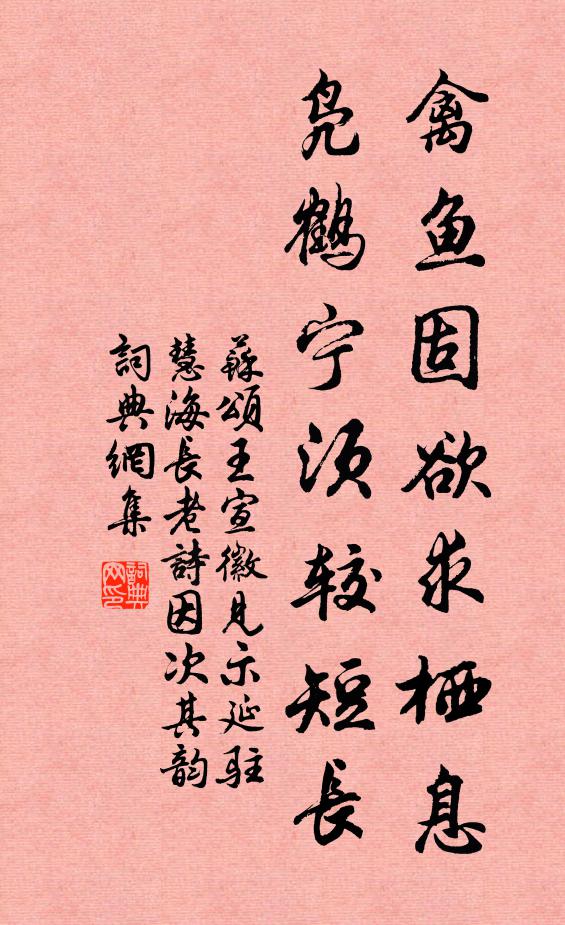 禽鱼固欲求栖息
凫鹤宁须较短長
蘇頌王宣徽見示延駐
慧海長老詩因次其韵
詞典網集
詞典网印